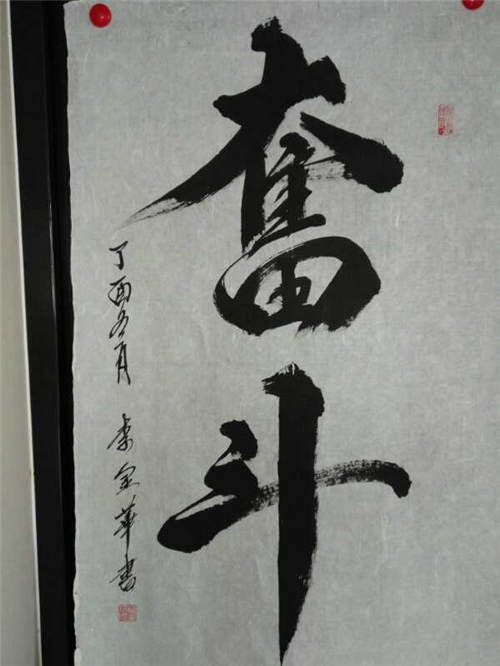 奮斗
丁酉九月 李金華書